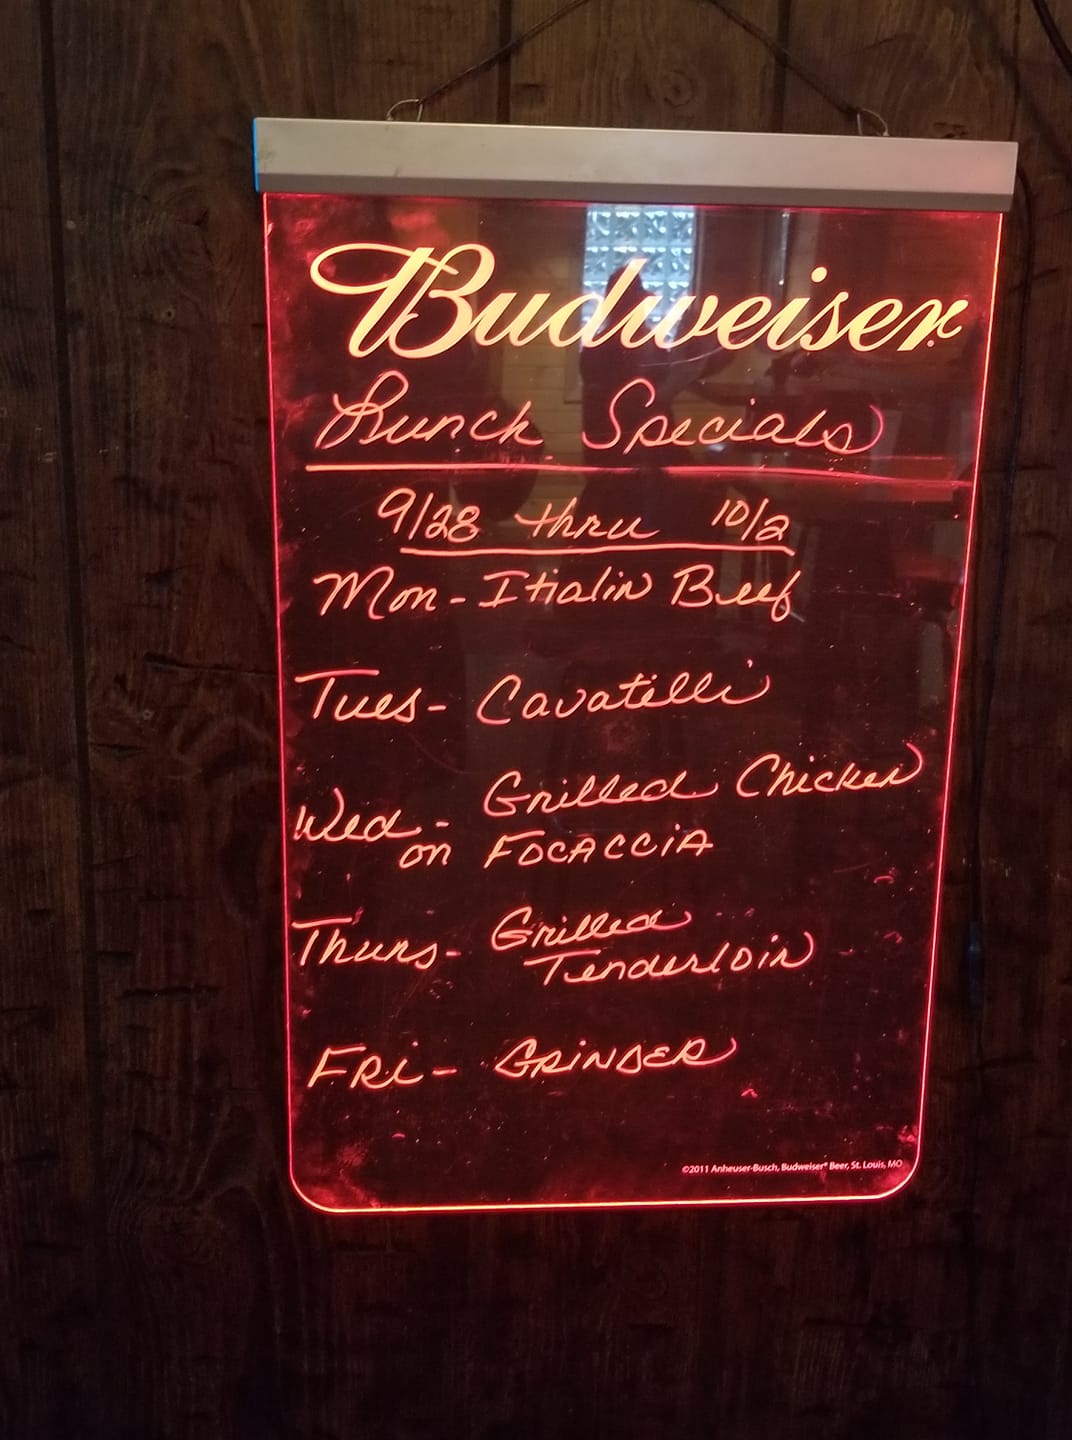 Budweiser
Lunch Specials
9/28 thru 10/2
Mon - Itialin Beef
Tues - Cavatelli
Wed - Grilled Chicken
on FOCACCIA
Thurs - Grilled
Tenderloin
FRi - GRiNDER
©2011 Anheuser-Busch, Budweiser® Beer, St. Louis, MO